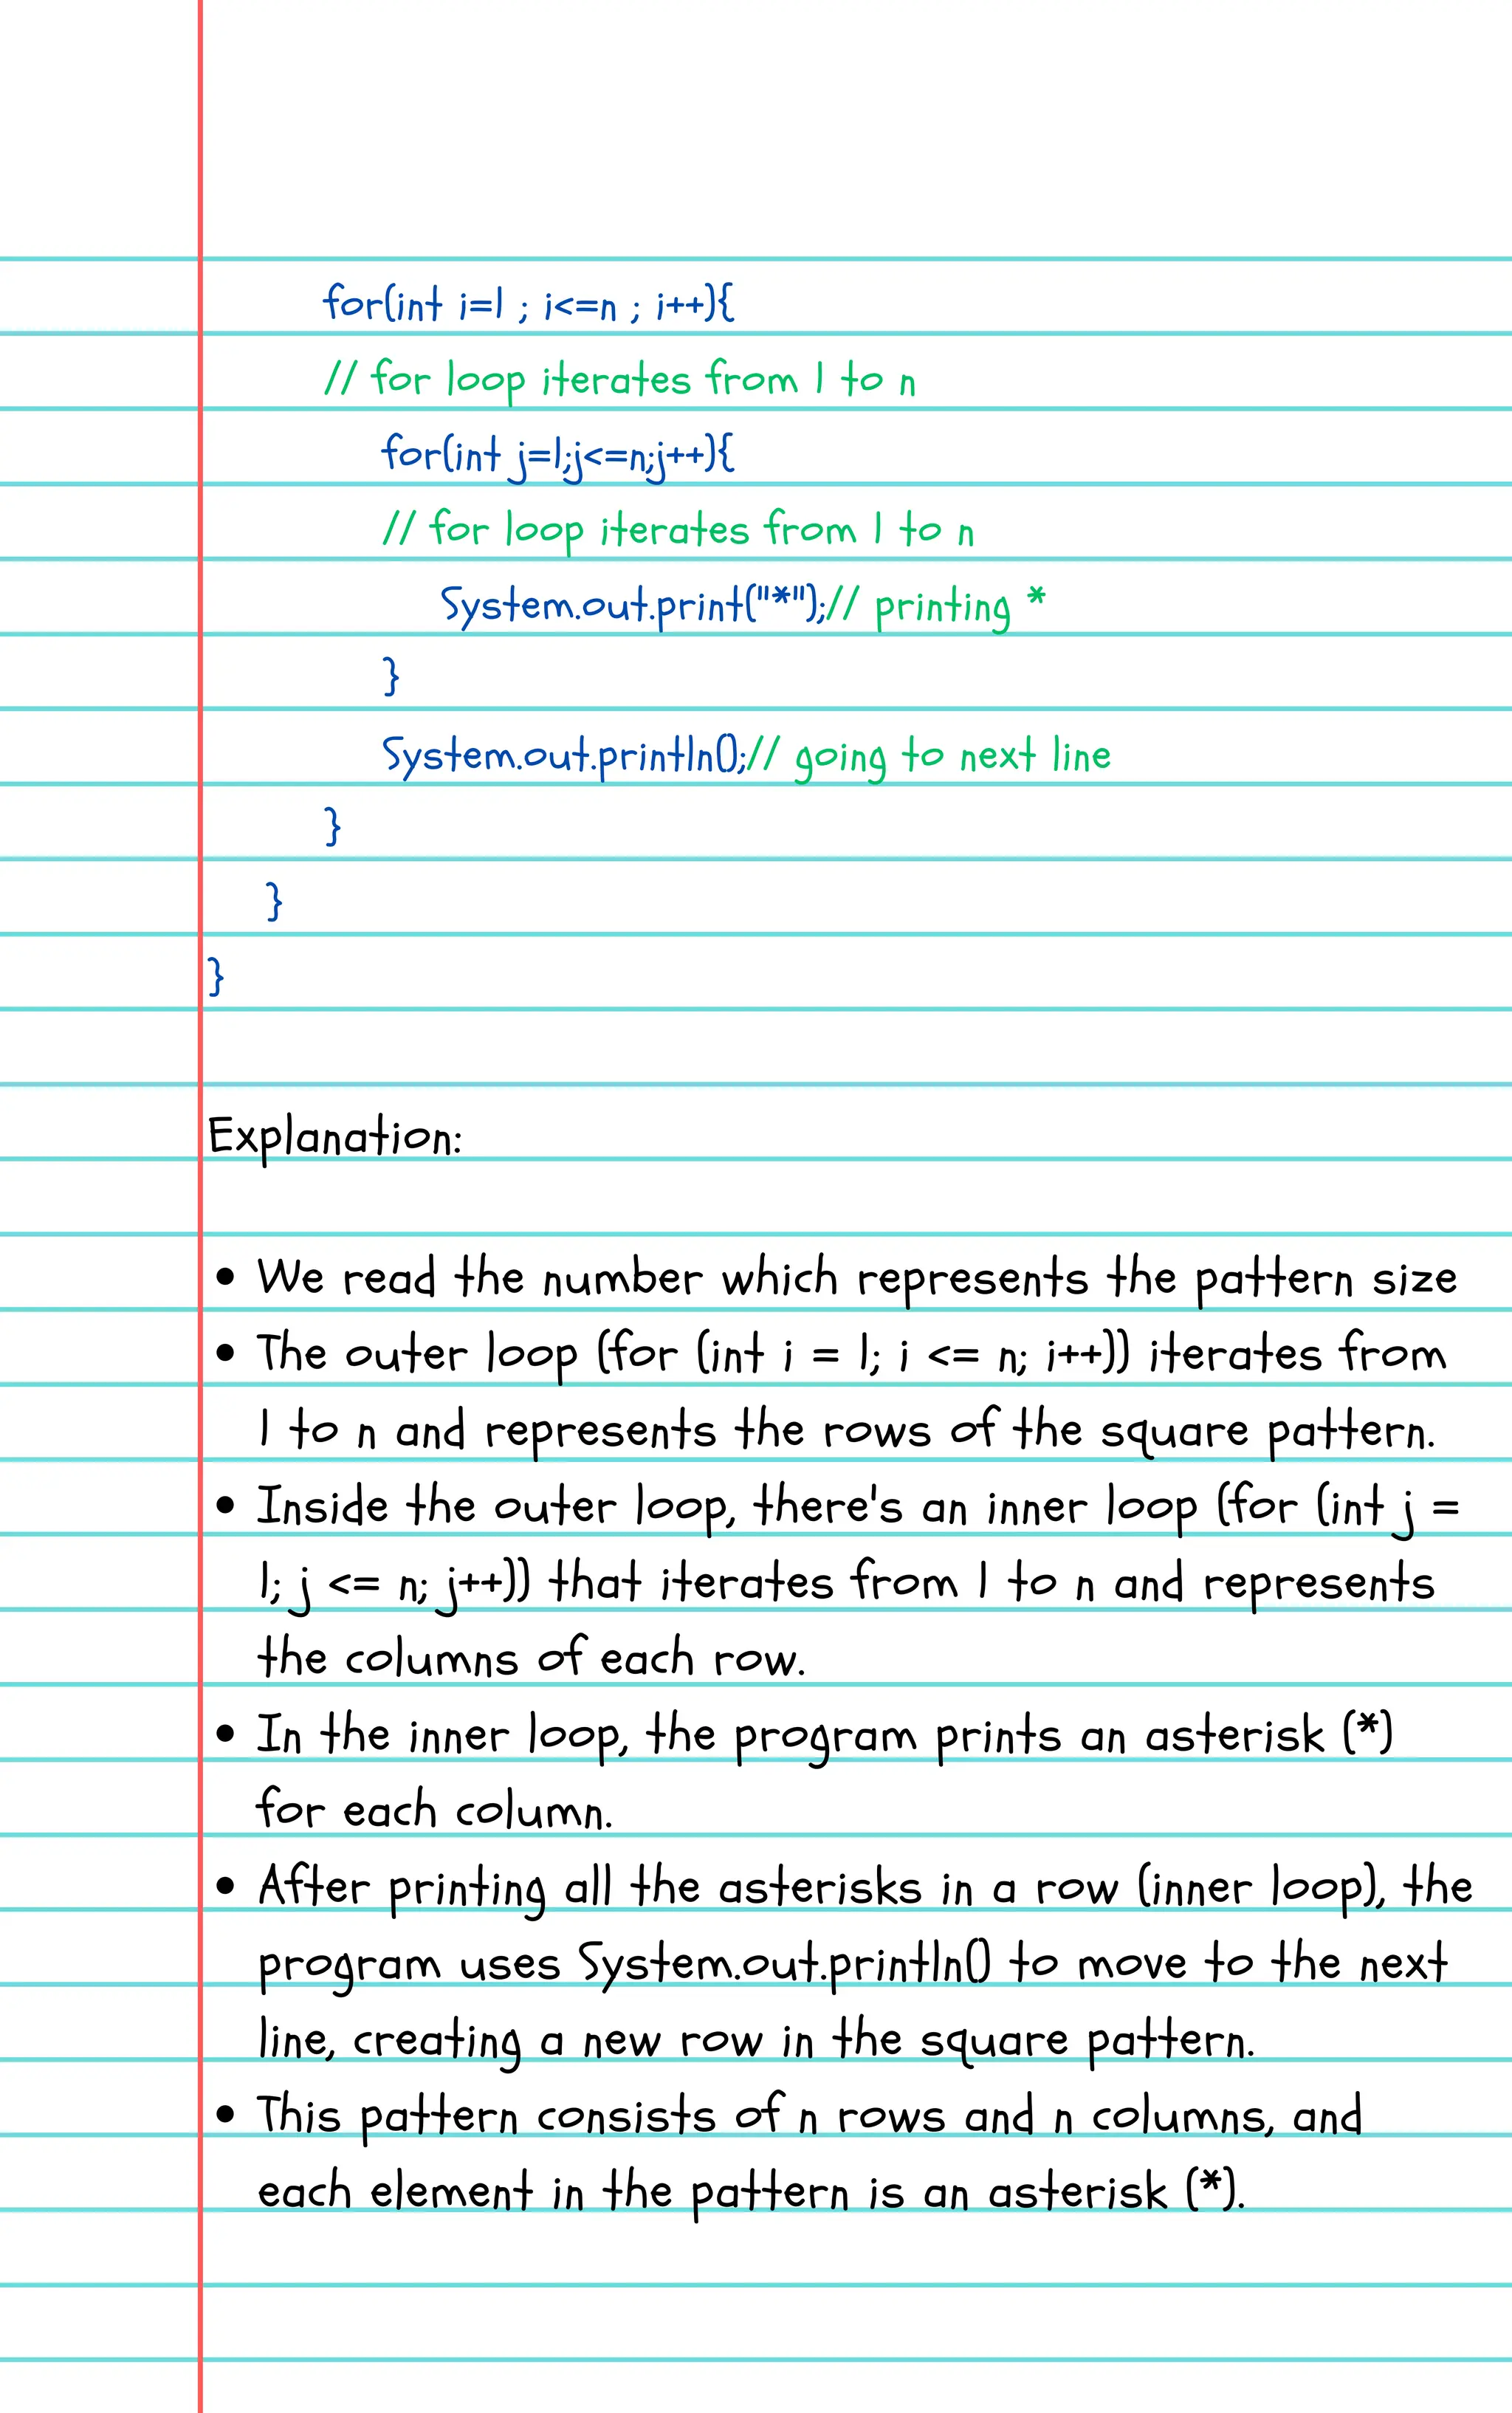 for(int i=1 ; i<=n ; i++){
// for loop iterates from 1 to n
for(int j=1;j<=n;j++){
// for loop iterates from 1 to n
System.out.print("*");// printing *
}
System.out.println();// going to next line
}
}
}
Explanation:
• We read the number which represents the pattern size
• The outer loop (for (int i = 1; i <= n; i++)) iterates from
1 to n and represents the rows of the square pattern.
• Inside the outer loop, there's an inner loop (for (int j =
1; j <= n; j++)) that iterates from 1 to n and represents
the columns of each row.
• In the inner loop, the program prints an asterisk (*)
for each column.
• After printing all the asterisks in a row (inner loop), the
program uses System.out.println() to move to the next
line, creating a new row in the square pattern.
• This pattern consists of n rows and n columns, and
each element in the pattern is an asterisk (*).